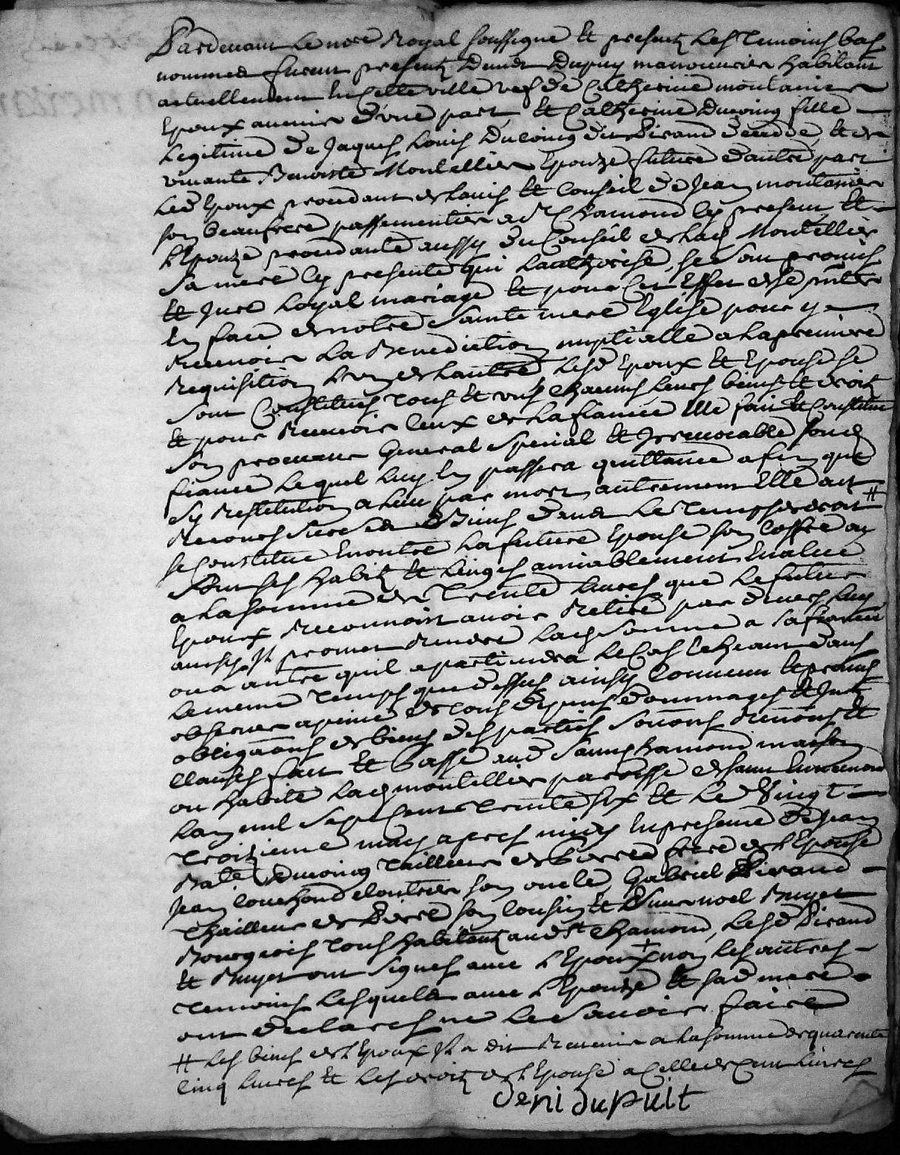 Pardevant Le nore Royal soussigne Et presentz Les Temoins bas
nommes furent presentz Denis Dupuy manouvrier habitant
actuellement En Cette ville vef de Catherine montanier
Epoux avenir d'une part, Et Catherine Ducoing fille
Legitime De Jaques Louis Ducoing du Dicand decede, Et de
vivante Benoiste Montellier Epouze future d'autre part
Led Epoux procedant de Lavis Et Conseil De Jean montanier
son beaufrere passementier a St Chamond Cy present, Et
L'Epouze procedante aussy du Conseil de Lad Montellier
Sa mere Cy presente qui Lauthorise, se sont promis
Et Jure Loyal mariage Et pour Cet Effet de se pnter
En face de notre Sainte mere Eglise pour y
Recevoir La Benediction nuptialle a La premiere
Requisition Lun de Lautre Lesd Epoux Et Epouse se
sont Constitues Tous Et uns Chacuns Leurs biens Et droit
Et pour Recevoir Ceux de La fiancee Elle fait Et Constitue
Son procureur General Special Et Irrevocable sond
fiancé Lequel Luy En passera quittance afin que
sy Restitution a Lieu par mort autrement Elle ait
Recours sur sesd Biens dans Le Temps de droit #
se constitue Enoutre La future Epouse son Coffre ou
sont ses habitz Et Linges amiablement Evalué
a La somme de Trente Livres que Le futur
Epoux Reconnoit avoir Retiré par devers Luy
aussy Il promet Rendre Lad somme a sa fiancée
ou a autre quil apartiendra Le Cas Echeant dans
Le meme Temps que dessus ainsy Convenu Et promis
observer a peine de Tous Depens dommages Et Intz
obligaons de biens des parties soumons Renons Et
Clauses fait Et Passé aud Saint Chamond maison
ou habite Lad montellier paroisse de saint Ennemond
Lan mil sept Cent Trente six Et Le Vingt
Troizieme may apres midy En presence De Jean
Bate Ducoing Tailleur de Pierre frere de L'Epouse
Jean son oncle, Gabriel Dicand
Tailleur de Pierre son Cousin Et Sieur noel Bruyet
Bourgeois Tous habitantz aud St Chamond, Lesd Dicand
Et Bruyet ont signes avec L'Epoux + non Les autres
Temoins Lesquels avec L'Epouze Et sad mere
ont declarés ne Le Savoir faire
# Les biens de L'Epoux Il a dit Revenir a La somme de quarente
Cinq Livres Et Les droitz de L'Epouse a Celle de Cent Livres
deni dupuit